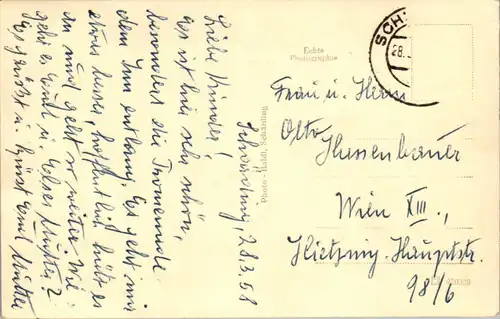 Schärding, 28.3.58
Liebe Kinder!
Es ist hier sehr schön,
besonders die Promenade
dem Inn entlang. Es geht mir
etwas besser, hoffentlich bleibt es
an und geht so weiter. Wie
geht es Euch u.
Es grüßt u. küsst Euch Mutter
Echte
Photographie
SCH
28.
Photo-Haidl, Schärding
Frau u. Herrn
Otto
Hussenbauer
Wien XIII.,
Hietzing. Hauptstr.
98/6